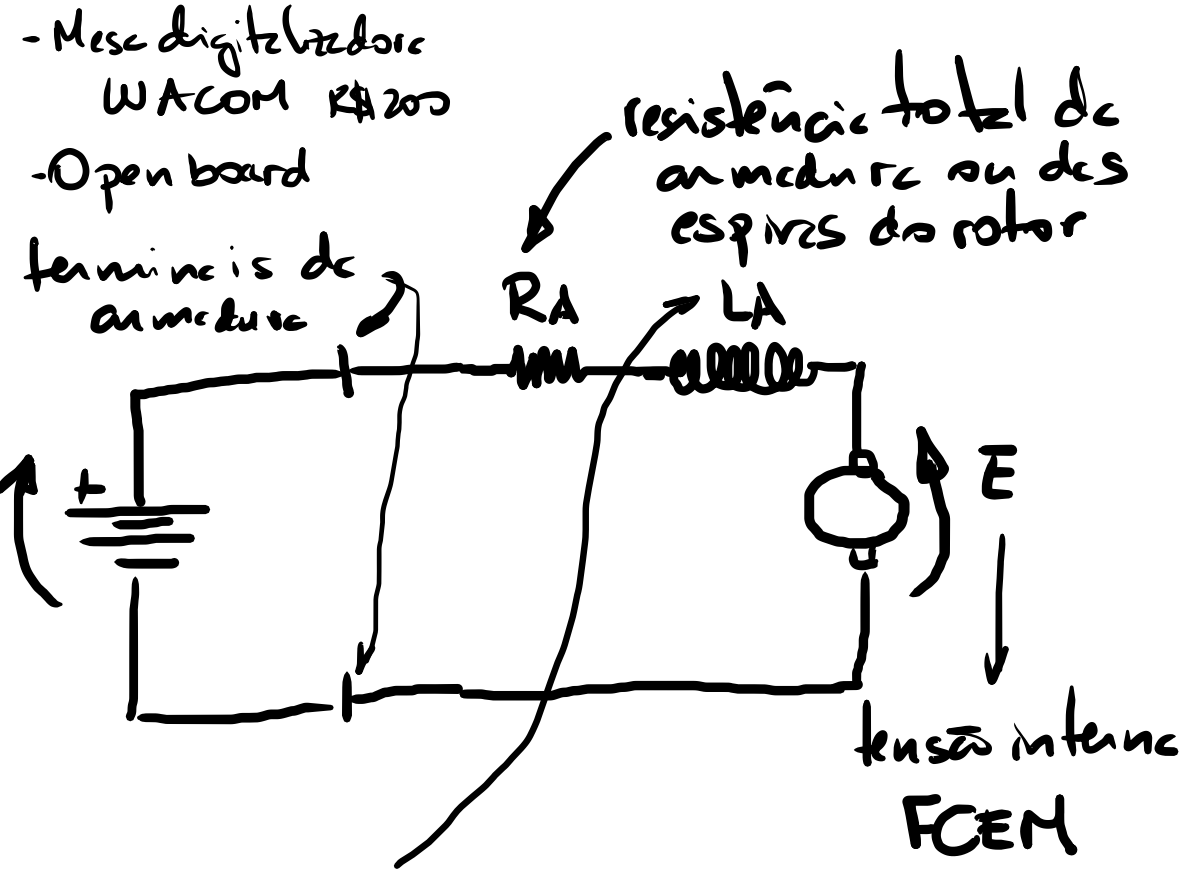 - Mesa digitalizadora
WACOM R$ 200
- Openboard
terminais da
armadura
resistência total da
armadura ou das
espiras do rotor
RA
LA
+
E
tensão interna
FCEM